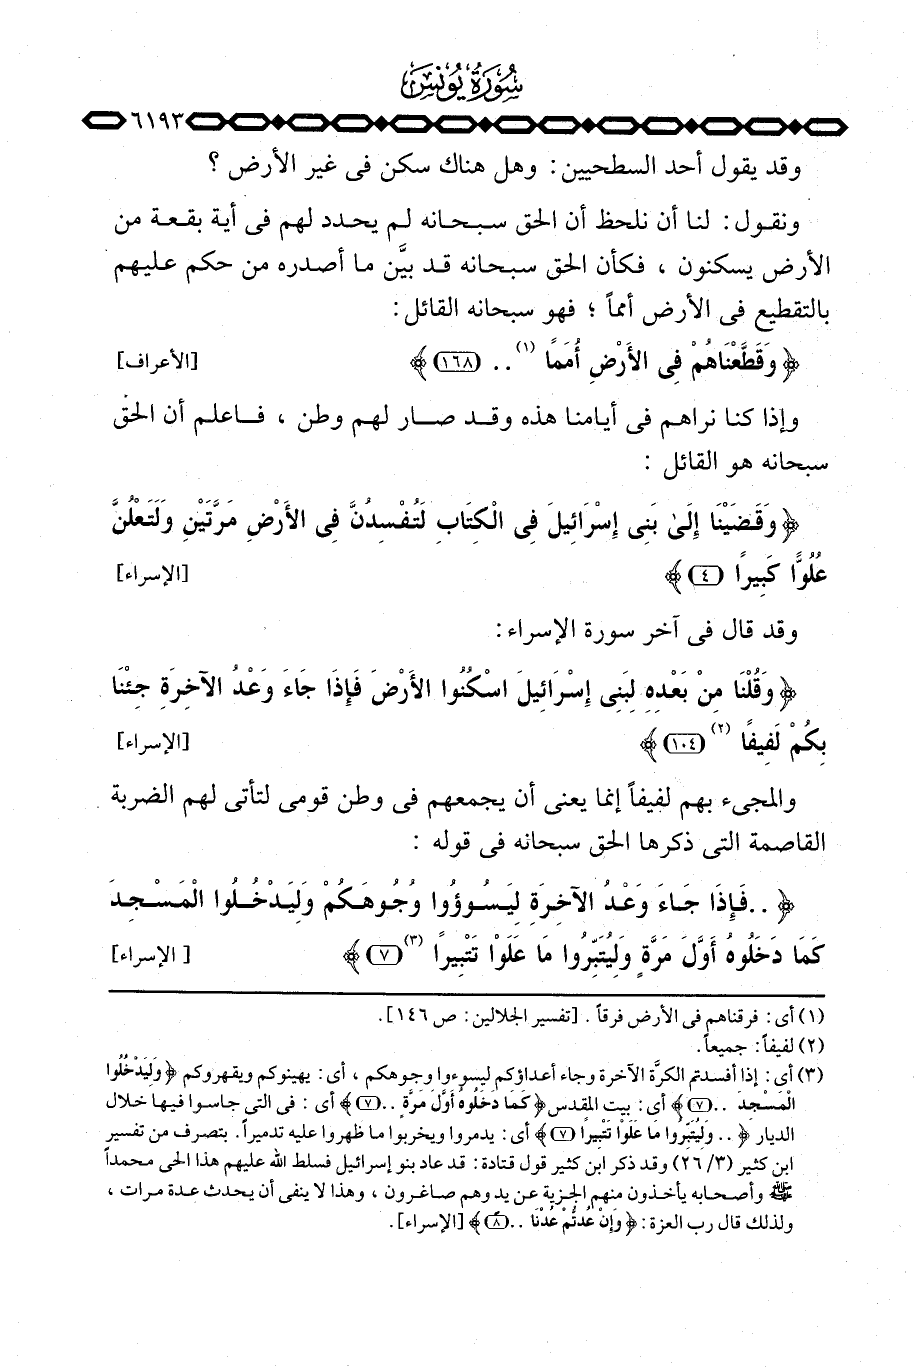 سُورَةُ يُونُسَ
٦١٩٣
وقد يقول أحد السطحيين: وهل هناك سكن فى غير الأرض ؟
ونقول: لنا أن نلحظ أن الحق سبحانه لم يحدد لهم فى أية بقعة من
الأرض يسكنون ، فكأن الحق سبحانه قد بيَّن ما أصدره من حكم عليهم
بالتقطيع فى الأرض أمماً ؛ فهو سبحانه القائل:
﴿ وَقَطَّعْنَاهُمْ فِى الأَرْضِ أُمَمًا (١) .. (١٦٨) ﴾ [الأعراف]
وإذا كنا نراهم فى أيامنا هذه وقد صار لهم وطن ، فاعلم أن الحق
سبحانه هو القائل :
﴿ وَقَضَيْنَا إِلَىٰ بَنِى إِسْرَائِيلَ فِى الْكِتَابِ لَتُفْسِدُنَّ فِى الأَرْضِ مَرَّتَيْنِ وَلَتَعْلُنَّ
عُلُوًّا كَبِيرًا (٤) ﴾ [الإسراء]
وقد قال فى آخر سورة الإسراء:
﴿ وَقُلْنَا مِنْ بَعْدِهِ لِبَنِى إِسْرَائِيلَ اسْكُنُوا الأَرْضَ فَإِذَا جَاءَ وَعْدُ الآخِرَةِ جِئْنَا
بِكُمْ لَفِيفًا (٢) (١٠٤) ﴾ [الإسراء]
والمجىء بهم لفيفاً إنما يعنى أن يجمعهم فى وطن قومى لتأتى لهم الضربة
القاصمة التى ذكرها الحق سبحانه فى قوله :
﴿ .. فَإِذَا جَاءَ وَعْدُ الآخِرَةِ لِيَسُوؤُوا وُجُوهَكُمْ وَلِيَدْخُلُوا الْمَسْجِدَ
كَمَا دَخَلُوهُ أَوَّلَ مَرَّةٍ وَلِيُتَبِّرُوا مَا عَلَوْا تَتْبِيرًا (٣) (٧) ﴾ [الإسراء]
(١) أى: فرقناهم فى الأرض فرقاً . [تفسير الجلالين: ص ١٤٦].
(٢) لفيفاً: جميعاً.
(٣) أى: إذا أفسدتم الكرَّة الآخرة وجاء أعداؤكم ليسوءوا وجوهكم ، أى: يهينوكم ويقهروكم ﴿ وَلِيَدْخُلُوا
الْمَسْجِدَ .. (٧) ﴾ أى: بيت المقدس ﴿ كَمَا دَخَلُوهُ أَوَّلَ مَرَّةٍ .. (٧) ﴾ أى : فى التى جاسوا فيها خلال
الديار ﴿ .. وَلِيُتَبِّرُوا مَا عَلَوْا تَتْبِيرًا (٧) ﴾ أى: يدمروا ويخربوا ما ظهروا عليه تدميراً. بتصرف من تفسير
ابن كثير (٣/ ٢٦) وقد ذكر ابن كثير قول قتادة: قد عاد بنو إسرائيل فسلط الله عليهم هذا الحى محمداً
ﷺ وأصحابه يأخذون منهم الجزية عن يد وهم صاغرون ، وهذا لا ينفى أن يحدث عدة مرات ،
ولذلك قال رب العزة: ﴿ وَإِنْ عُدتُّمْ عُدْنَا .. (٨) ﴾ [الإسراء].